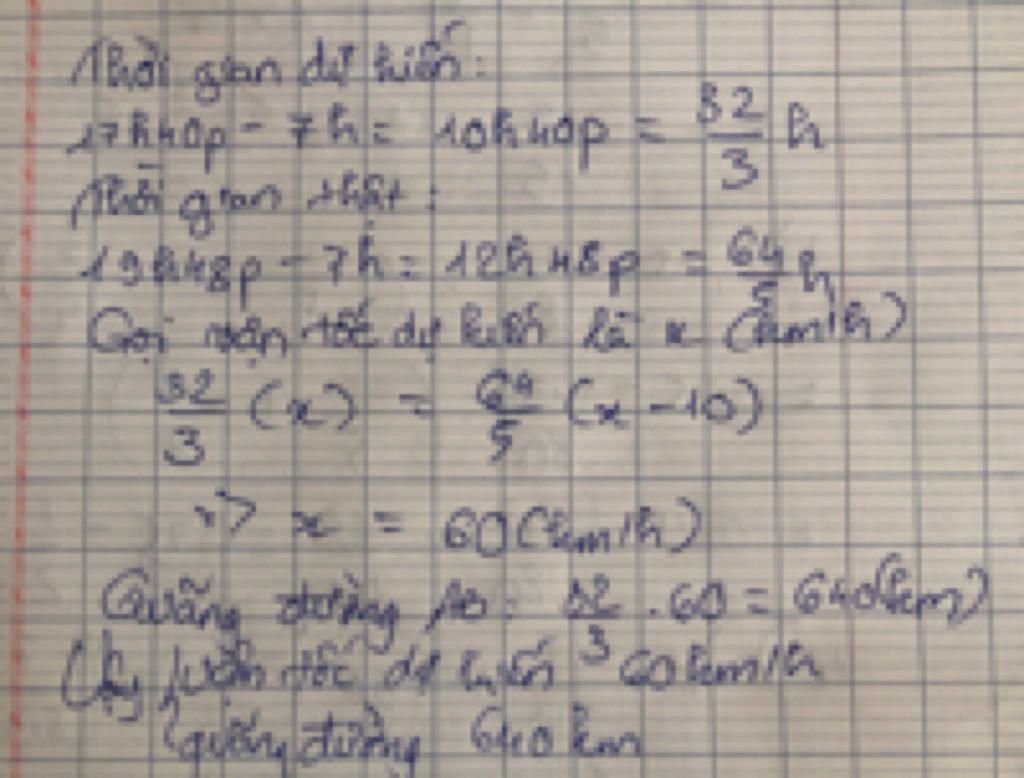 Thời gian dự kiến:
17h40p - 7h = 10h40p = 32/3 h
Thời gian thật:
19h48p - 7h = 12h48p = 64/5 h
Gọi vận tốc dự kiến là x (km/h)
32/3 (x) = 64/5 (x - 10)
=> x = 60 (km/h)
Quãng đường AB: 32/3 . 60 = 640 (km)
Vậy vận tốc dự kiến 60km/h
quãng đường 640 km